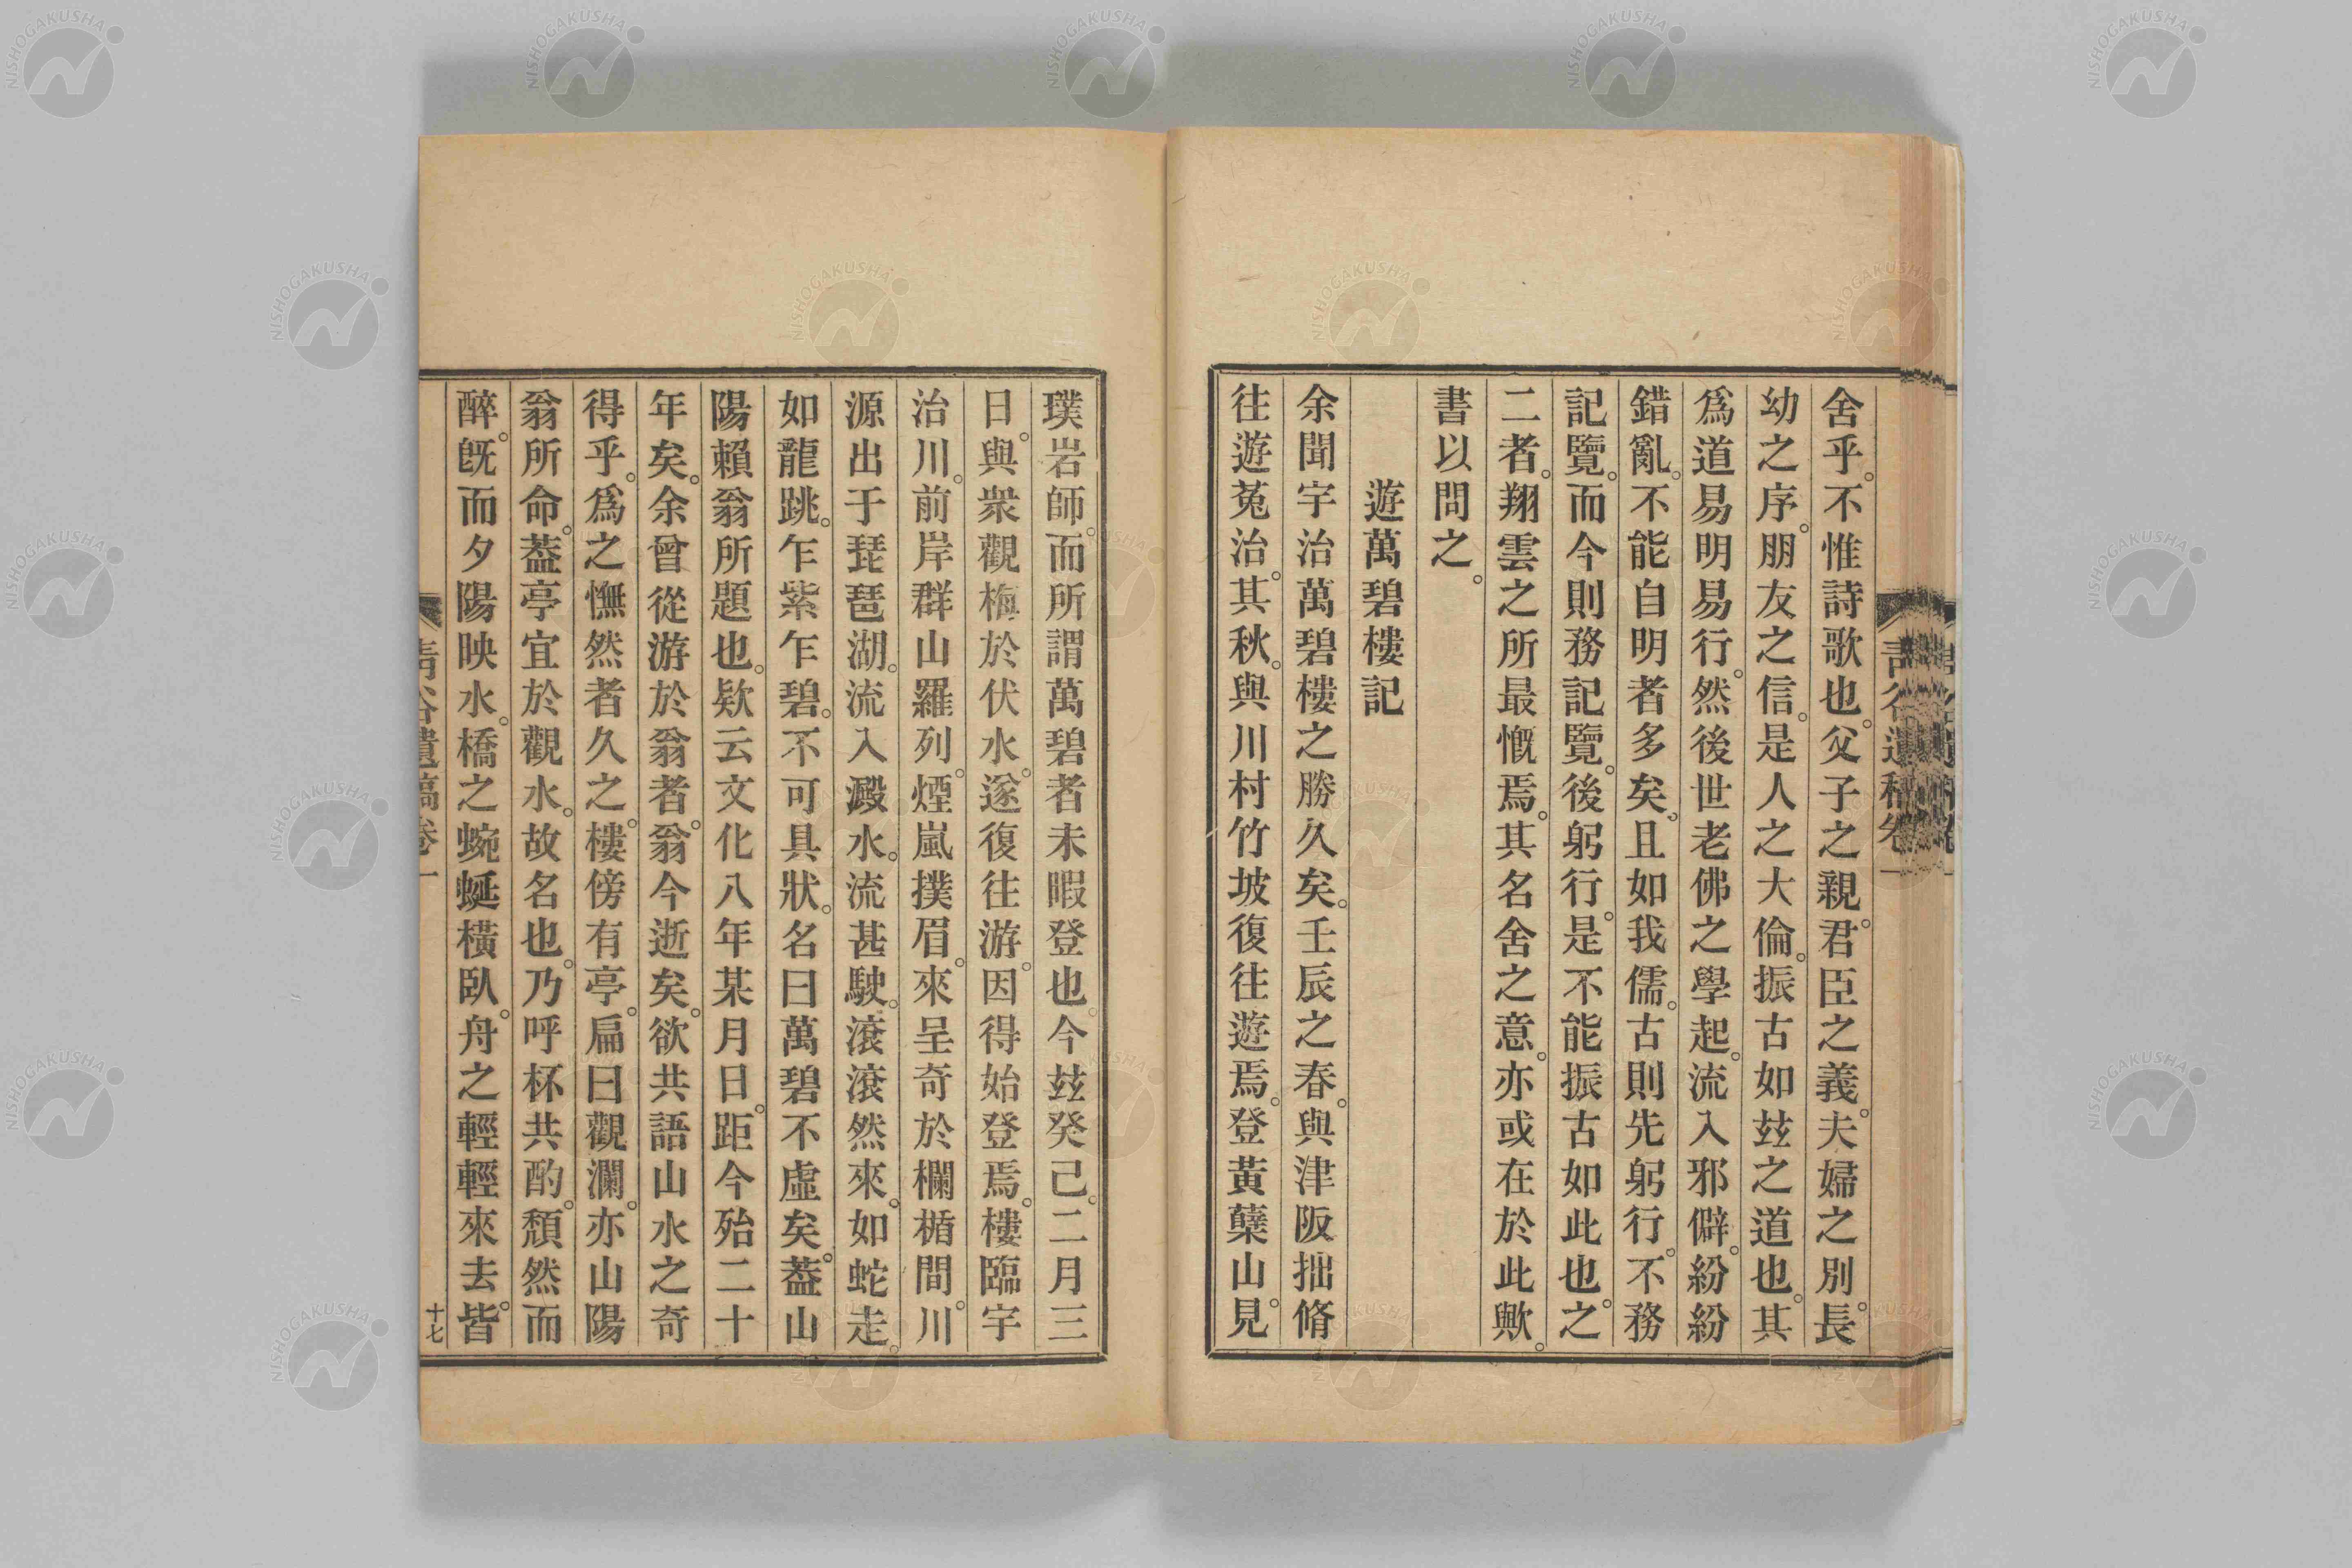 舍乎。不惟詩歌也。父子之親。君臣之義。夫婦之別。長
幼之序。朋友之信。是人之大倫。振古如玆之道也。其
爲道易明易行。然後世老佛之學起。流入邪僻。紛紛
錯亂。不能自明者多矣。且如我儒。古則先躬行。不務
記覽。而今則務記覽。後躬行。是不能振古如此也。之
二者。翔雲之所最慨焉。其名舍之意。亦或在於此歟。
書以問之。
遊萬碧樓記
余聞宇治萬碧樓之勝久矣。壬辰之春。與津阪拙脩
往遊菟治。其秋。與川村竹坡復往遊焉。登黃蘗山。見
璞岩師。而所謂萬碧者未暇登也。今玆癸己。二月三
日。與衆觀梅於伏水。遂復往游。因得始登焉。樓臨宇
治川。前岸群山羅列。煙嵐撲眉。來呈奇於欄楯間。川
源出于琵琶湖。流入澱水。流甚駛。滾滾然來。如蛇走。
如龍跳。乍紫乍碧。不可具狀。名曰萬碧不虛矣。葢山
陽賴翁所題也。欵云文化八年某月日。距今殆二十
年矣。余曾從游於翁者。翁今逝矣。欲共語山水之奇
得乎。爲之憮然者久之。樓傍有亭。扁曰觀瀾。亦山陽
翁所命。葢亭宜於觀水。故名也。乃呼杯共酌。頹然而
醉。既而夕陽映水。橋之蜿蜒橫臥。舟之輕輕來去。皆
遺稿卷一
十七
NISHOGAKUSHA